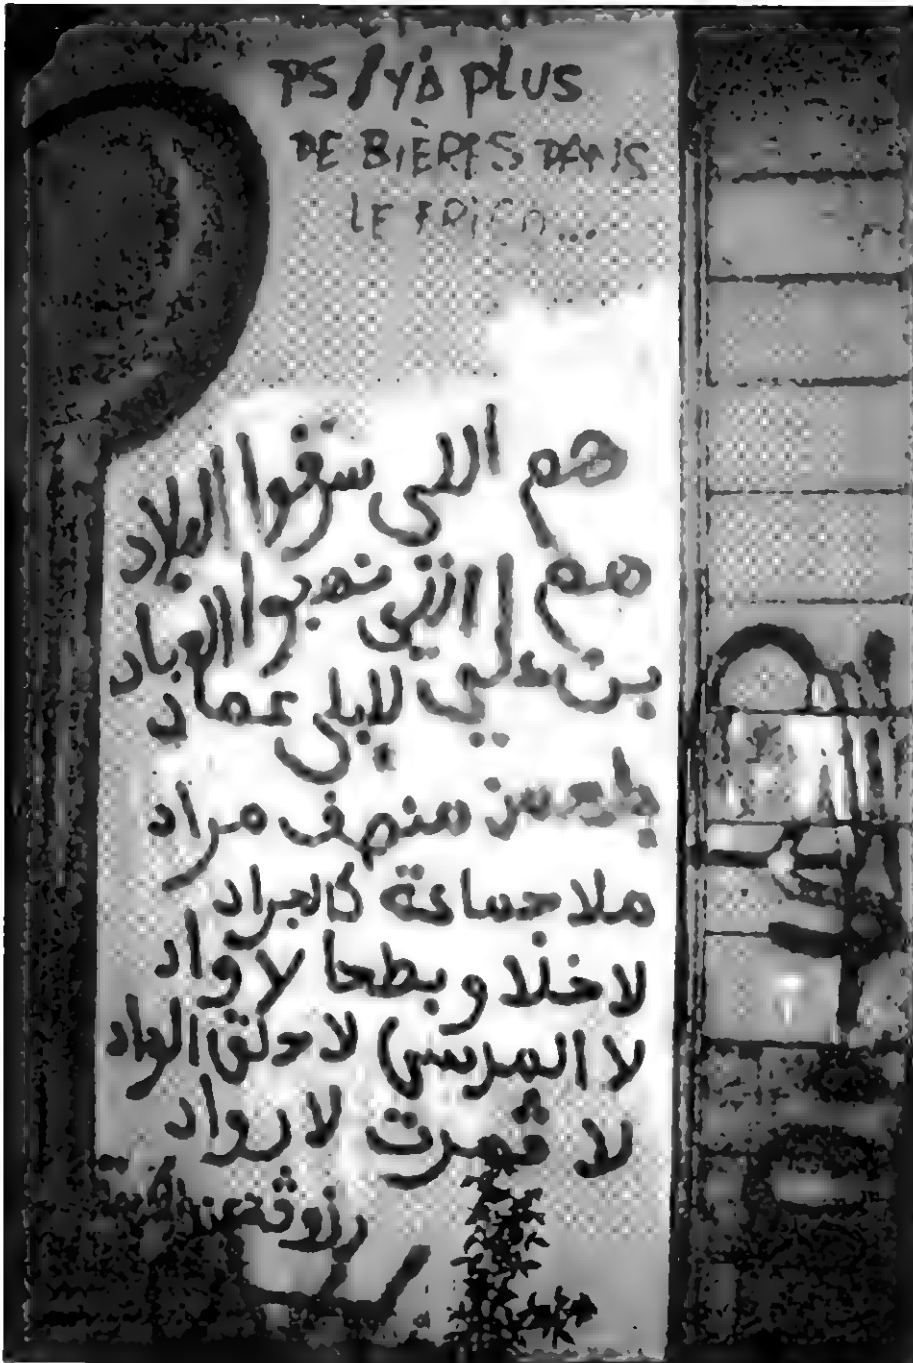 PS/Y'A PLUS
DE BIÈRES DANS
LE FRIGO...
هم اللي سرقوا البلاد
هم اللي نهبوا العباد
بن علي ليلى عماد
بلحسن منصف مراد
ملا جماعة كالجراد
لا خلاو بطحا لا واد
لا المرسى لا حلق الواد
لا ڨمرت لا رواد